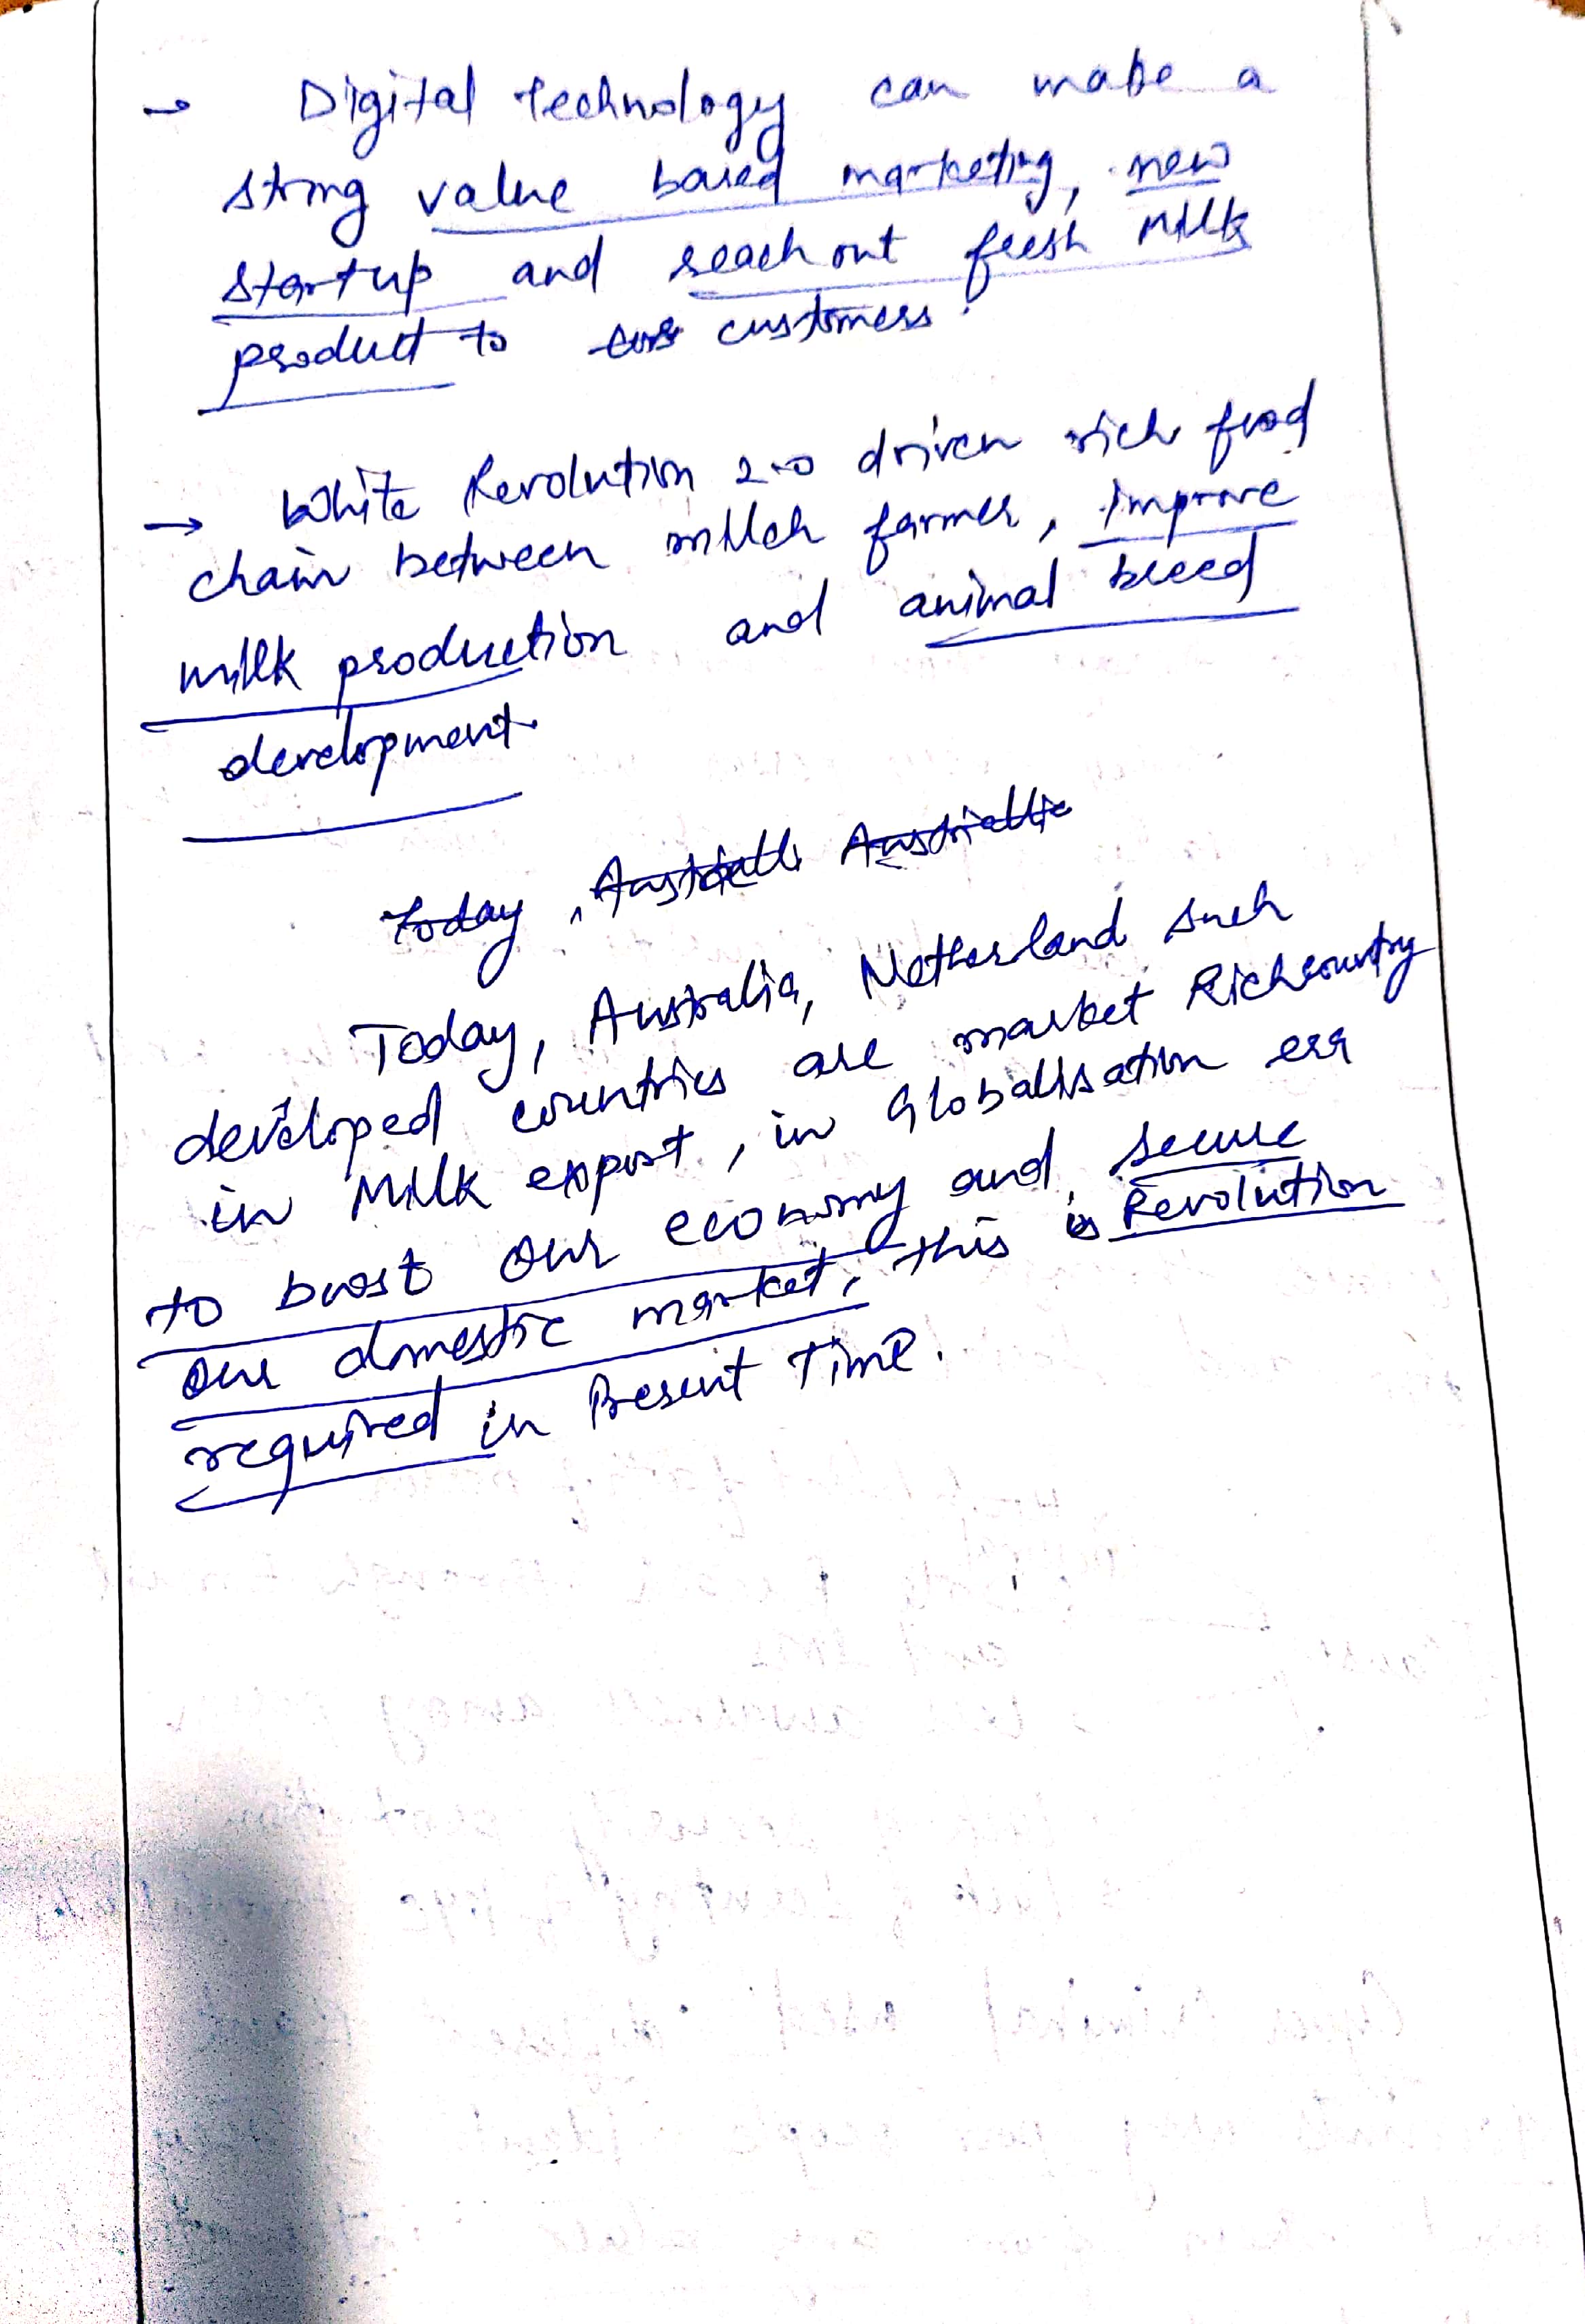 → Digital Technology can make a
strong value based marketing, new
startup and reach out fresh milk
product to customers.
→ White Revolution 2.0 driven rich food
chain between milch farmer, improve
milk production and animal breed
development.
Today,
Today, Australia, Netherland such
developed countries are market Rich country
in Milk export, in Globalisation era
to boost our economy and secure
our domestic market, this is Revolution
required in Present Time.